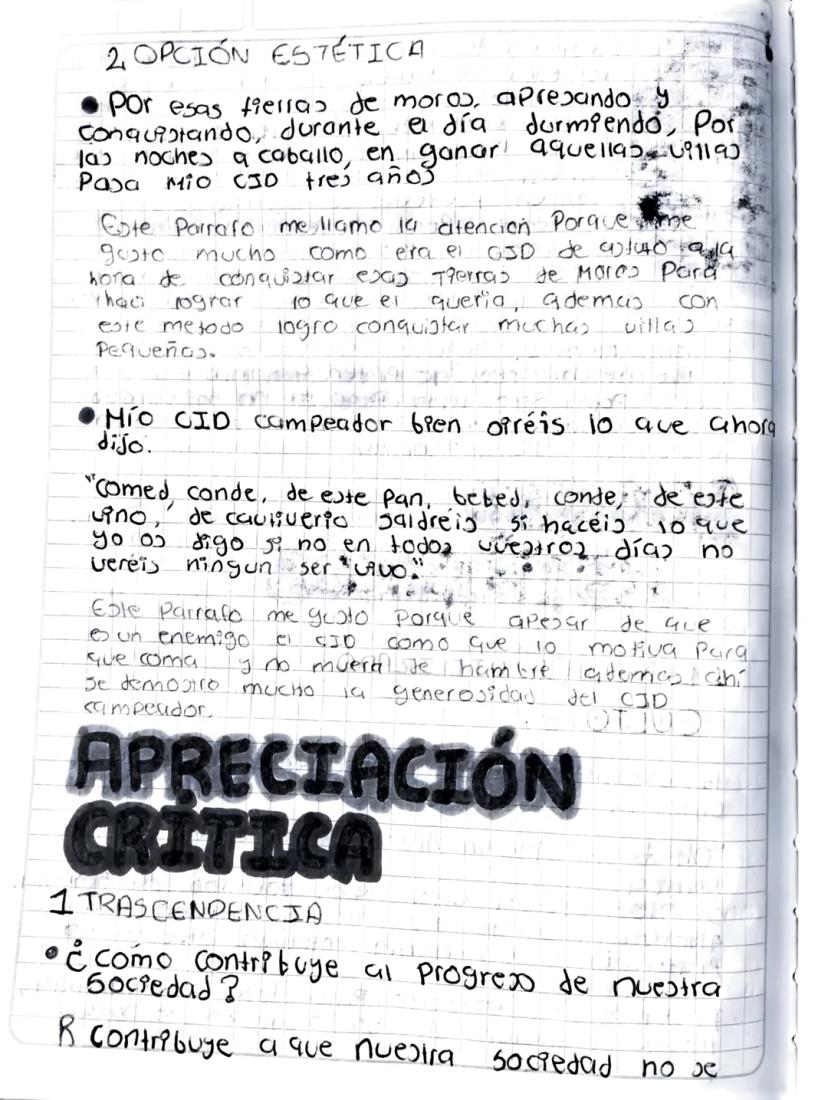 2 OPCIÓN ESTÉTICA
• Por esas tierras de moros, apresando y
conquistando, durante el día durmiendo, Por
las noches a caballo, en ganar aquellas villas
Pasa Mio CID tres años
Este Parrafo me llamo la atencion Porque me
gusto mucho como era el CID de astuto a la
hora de conquistar esas Tierras de Moros Para
haci lograr lo que el queria, ademas con
este metodo logro conquistar muchas villas
Pequeñas.
• Mío CID campeador bien oiréis lo que ahora
dijo.
"comed, conde, de este pan, bebed, conde, de este
vino, de cautiverio saldréis si hacéis lo que
yo os digo si no en todos vuestros días no
veréis ningun ser vivo."
Este Parrafo me gusto Porque apesar de que
es un enemigo el CID como que lo motiva Para
que coma y no muera de hambre ademas ahí
se demostro mucho la generosidad del CID
campeador.
APRECIACIÓN
CRÍTICA
1 TRASCENDENCIA
• ¿como contribuye al progreso de nuestra
sociedad?
R contribuye a que nuestra sociedad no se